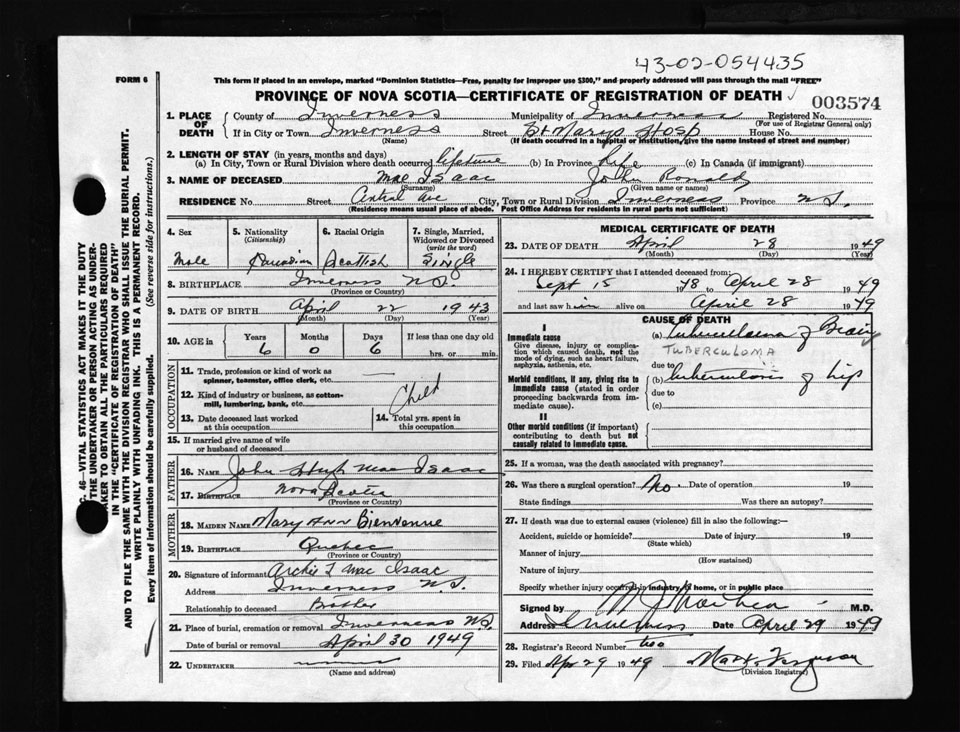 43-02-054435
FORM 6
This form if placed in an envelope, marked "Dominion Statistics—Free, penalty for improper use $300," and properly addressed will pass through the mail "FREE"
PROVINCE OF NOVA SCOTIA—CERTIFICATE OF REGISTRATION OF DEATH
003574
1. PLACE OF DEATH
County of Inverness Municipality of Inverness Registered No.
(For use of Registrar General only)
If in City or Town Inverness Street St Marys Hosp House No.
(Name) (If death occurred in a hospital or institution, give the name instead of street and number)
2. LENGTH OF STAY (in years, months and days)
(a) In City, Town or Rural Division where death occurred lifetime (b) In Province Life (c) In Canada (if immigrant)
3. NAME OF DECEASED Mac Isaac John Ronald
(Surname) (Given name or names)
RESIDENCE No. Street Central Ave City, Town or Rural Division Inverness Province N.S.
(Residence means usual place of abode. Post Office Address for residents in rural parts not sufficient)
4. Sex
Male
5. Nationality
(Citizenship)
Canadian
6. Racial Origin
Scottish
7. Single, Married, Widowed or Divorced
(write the word)
Single
8. BIRTHPLACE Inverness N.S.
(Province or Country)
9. DATE OF BIRTH April 22 1943
(Month) (Day) (Year)
10. AGE in
Years Months Days If less than one day old
6 0 6 hrs. or min.
OCCUPATION
11. Trade, profession or kind of work as
spinner, teamster, office clerk, etc.
12. Kind of industry or business, as cotton-
mill, lumbering, bank, etc.
Child
13. Date deceased last worked
at this occupation
14. Total yrs. spent in
this occupation
15. If married give name of wife
or husband of deceased
FATHER
16. NAME John Hugh Mac Isaac
17. BIRTHPLACE Nova Scotia
(Province or Country)
MOTHER
18. MAIDEN NAME Mary Ann Bienvenue
19. BIRTHPLACE Quebec
(Province or Country)
20. Signature of informant Archie L Mac Isaac
Address Inverness N.S.
Relationship to deceased Brother
21. Place of burial, cremation or removal Inverness N.S.
Date of burial or removal April 30 1949
22. UNDERTAKER
(Name and address)
MEDICAL CERTIFICATE OF DEATH
23. DATE OF DEATH April 28 1949
(Month) (Day) (Year)
24. I HEREBY CERTIFY that I attended deceased from:
Sept 15 1948 to April 28 1949
and last saw him alive on April 28 1949
CAUSE OF DEATH
I
Immediate cause
Give disease, injury or complica-
tion which caused death, not the
mode of dying, such as heart failure,
asphyxia, asthenia, etc.
(a) Tuberculoma of Brain
TUBERCULOMA
due to
Morbid conditions, if any, giving rise to
immediate cause (stated in order
proceeding backwards from im-
mediate cause).
(b) tuberculosis of hip
due to
(c)
II
Other morbid conditions (if important)
contributing to death but not
causally related to immediate cause.
25. If a woman, was the death associated with pregnancy?
26. Was there a surgical operation? No. Date of operation 19
State findings Was there an autopsy?
27. If death was due to external causes (violence) fill in also the following:—
Accident, suicide or homicide? Date of injury 19
(State which)
Manner of injury
(How sustained)
Nature of injury
Specify whether injury occurred in industry, home, or in public place
Signed by M.D.
Address Inverness Date April 29 1949
28. Registrar's Record Number two
29. Filed Apr 29 1949 Ferguson
(Division Registrar)
C. 46—VITAL STATISTICS ACT MAKES IT THE DUTY
THE UNDERTAKER OR PERSON ACTING AS UNDER-
TAKER TO OBTAIN ALL THE PARTICULARS REQUIRED
IN THE "CERTIFICATE OF REGISTRATION OF DEATH"
AND TO FILE THE SAME WITH THE DIVISION REGISTRAR WHO SHALL ISSUE THE BURIAL PERMIT.
WRITE PLAINLY WITH UNFADING INK. THIS IS A PERMANENT RECORD.
Every item of information should be carefully supplied. (See reverse side for instructions.)